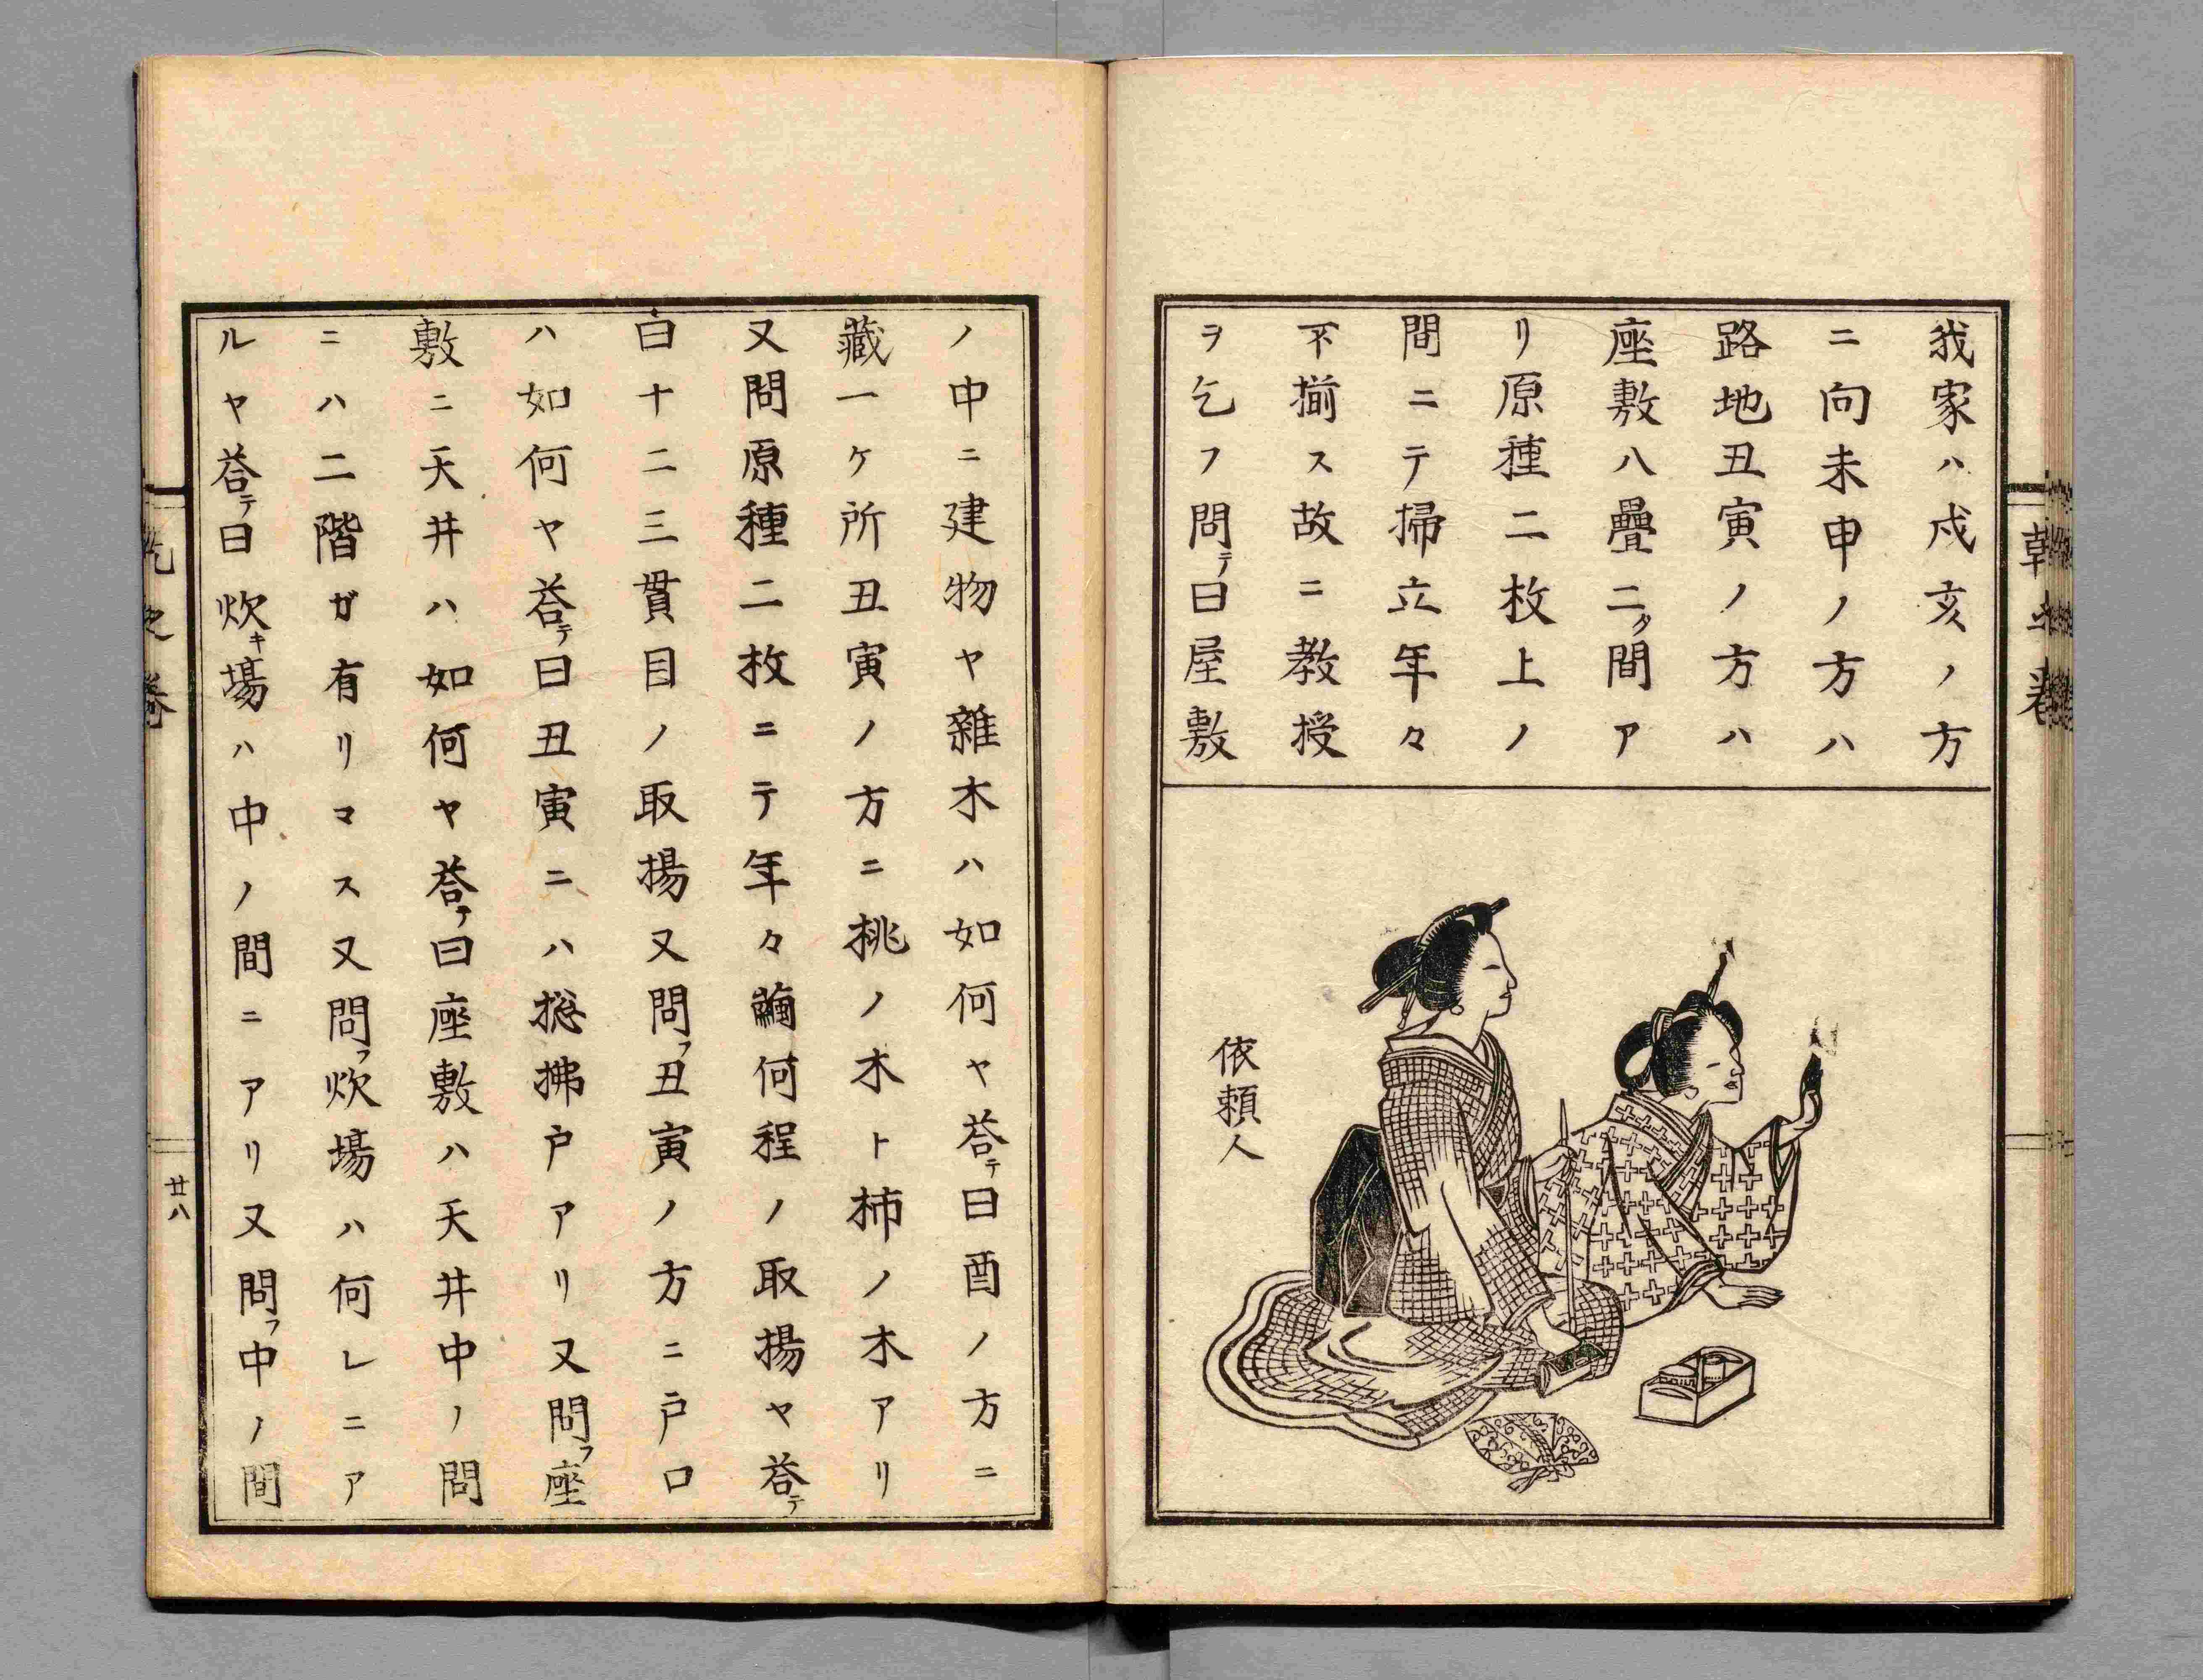 我家ハ戌亥ノ方
ニ向未申ノ方ハ
路地丑寅ノ方ハ
座敷八疊二タ間ア
リ原種二枚上ノ
間ニテ掃立年々
不揃ス故ニ教授
ヲ乞フ問テ曰屋敷
依頼人
ノ中ニ建物ヤ雜木ハ如何ヤ荅テ曰酉ノ方ニ
藏一ケ所丑寅ノ方ニ桃ノ木ト柿ノ木アリ
又問原種二枚ニテ年々繭何程ノ取揚ヤ荅テ
曰十二三貫目ノ取揚又問フ丑寅ノ方ニ戸口
ハ如何ヤ荅テ曰丑寅ニハ摠拂戸アリ又問フ座
敷ニ天井ハ如何ヤ荅テ曰座敷ハ天井中ノ間
ニハ二階ガ有リマス又問フ炊塲ハ何レニア
ルヤ荅テ曰炊キ塲ハ中ノ間ニアリ又問フ中ノ間
乾之卷
廿八